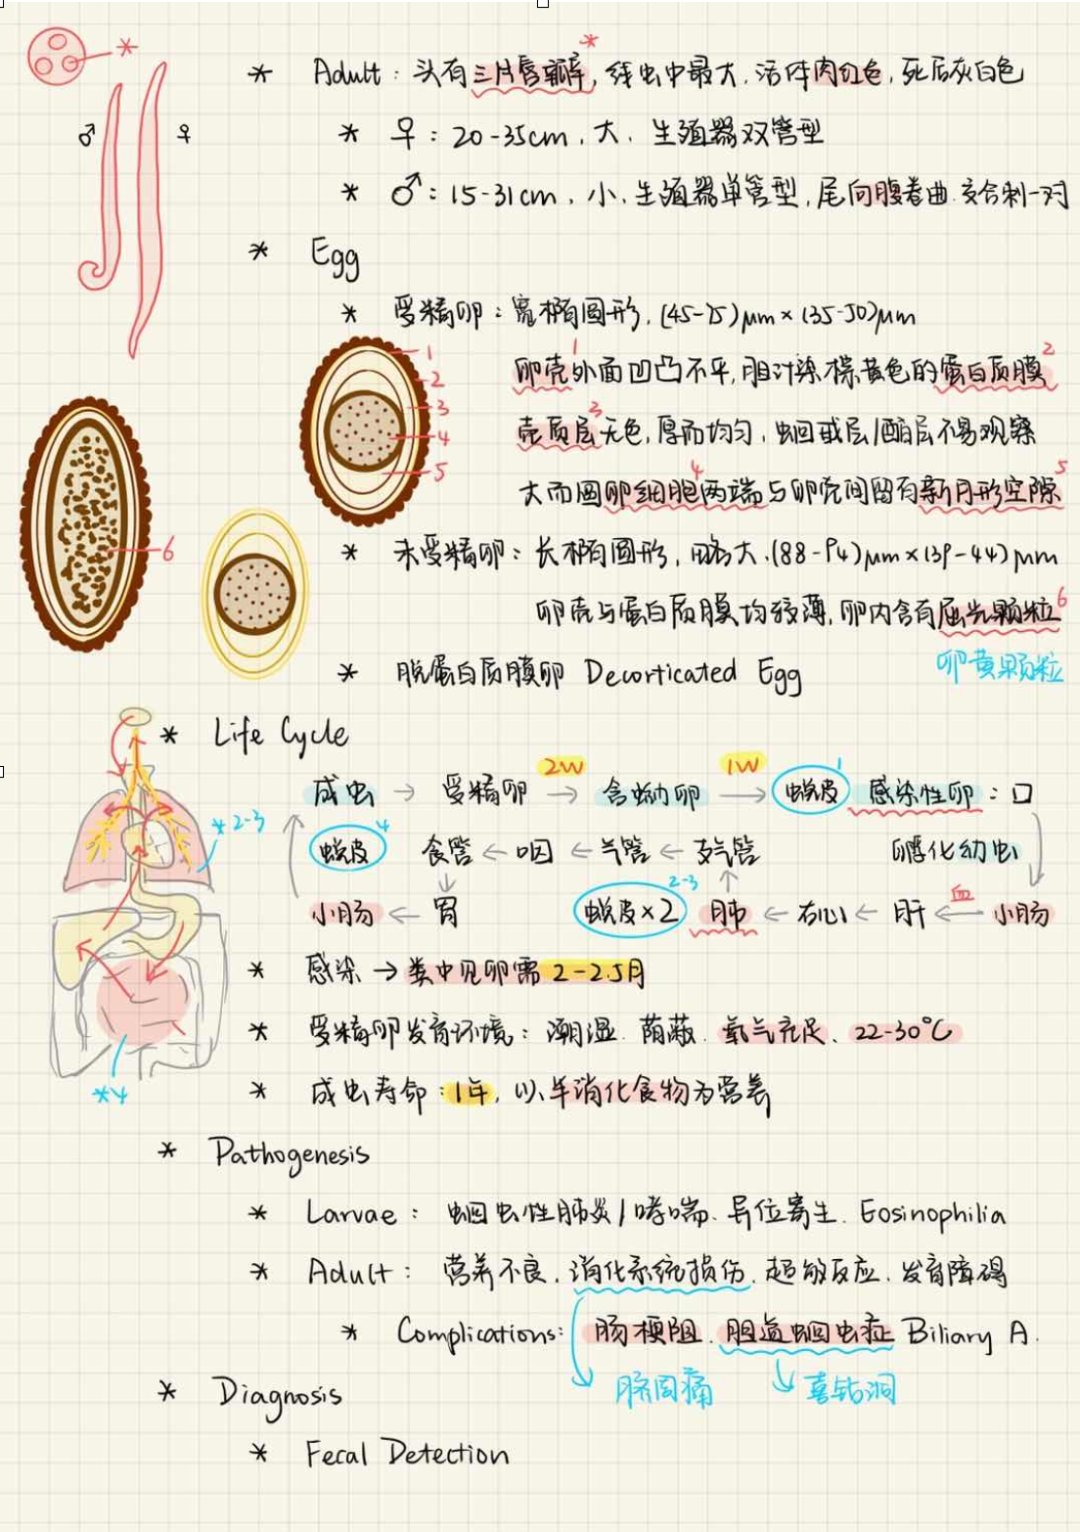 * Adult：头有三片唇瓣*，线虫中最大，活体肉红色，死后灰白色
♂ ♀ * ♀：20-35cm，大，生殖器双管型
* ♂：15-31cm，小，生殖器单管型，尾向腹卷曲，交合刺一对
* Egg
* 受精卵：宽椭圆形，(45-75)μm×(35-50)μm
1 2 3 4 5
卵壳1外面凹凸不平，胆汁染棕黄色的蛋白质膜2
壳质层3无色，厚而均匀，蛔甙层/酯层不易观察
大而圆卵细胞4两端与卵壳间留有新月形空隙5
6
* 未受精卵：长椭圆形，略大，(88-94)μm×(39-44)μm
卵壳与蛋白质膜均较薄，卵内含有屈光颗粒6
卵黄颗粒
* 脱蛋白质膜卵 Decorticated Egg
* Life Cycle
成虫 → 受精卵 2W→ 含蚴卵 1W→ 蜕皮1 感染性卵：口
*2-3
蜕皮4 食管 ← 咽 ← 气管 ← 支气管 孵化幼虫
小肠 ← 胃 蜕皮×2 2-3 肺 ← 右心 ← 肝 ←血 小肠
* 感染 → 粪中见卵需 2-2.5月
* 受精卵发育环境：潮湿、荫蔽、氧气充足、22-30°C
*4
* 成虫寿命：1年，以半消化食物为营养
* Pathogenesis
* Larvae：蛔虫性肺炎/哮喘、异位寄生、Eosinophilia
* Adult：营养不良、消化系统损伤、超敏反应、发育障碍
* Complications：肠梗阻、胆道蛔虫症 Biliary A.
脐周痛 喜钻洞
* Diagnosis
* Fecal Detection